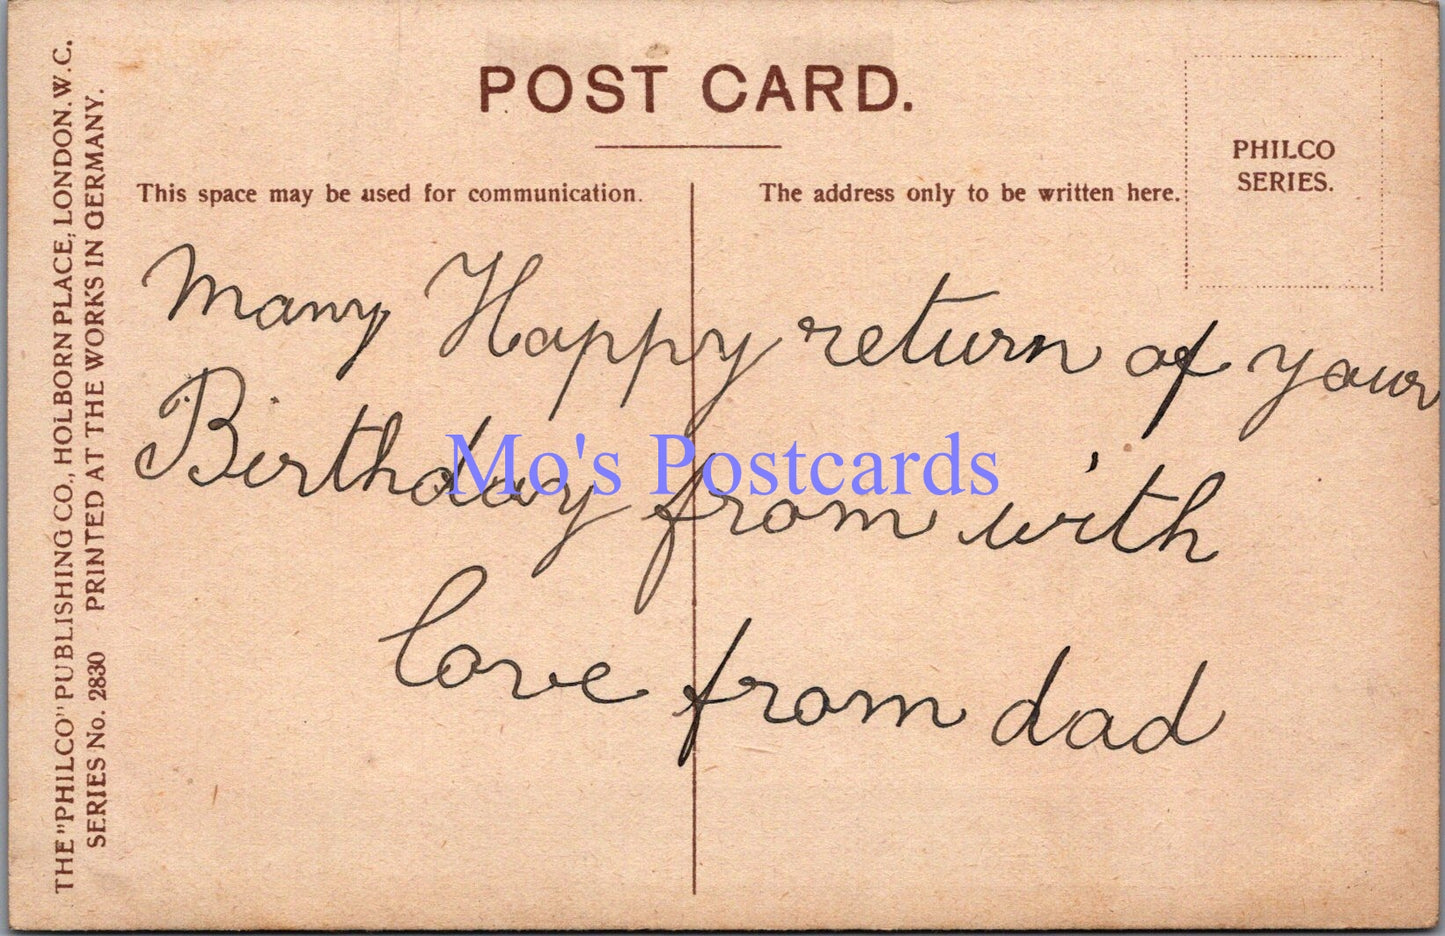 POST CARD.
PHILCO
SERIES.
This space may be used for communication.
The address only to be written here.
Many Happy return of your
Birthday from with
love from dad
Mo's Postcards
THE "PHILCO" PUBLISHING CO., HOLBORN PLACE, LONDON. W.C.
SERIES No. 2830 PRINTED AT THE WORKS IN GERMANY.